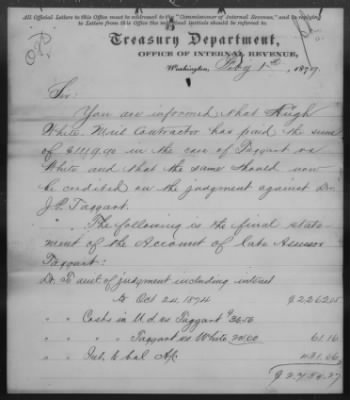 All Official Letters to this Office must be addressed to the "Commissioner of Internal Revenue," and in replying
to Letters from this Office the Initial should be referred to.
Treasury Department,
OFFICE OF INTERNAL REVENUE,
Washington, Feby 1st, 1877.
Sir:
You are informed that Hugh
White Mail Contractor has paid the sum
of $1119.90 in the case of Taggart vs
White and that the same should now
be credited on the judgment against Dr.
J. P. Taggart.
The following is the final state-
ment of the Account of late Assessor
Taggart:
Dr. To amt of judgment including interest
to Oct 24, 1874 $2262.05
" " Costs in U.S. vs Taggart $36.50
" " " " Taggart vs White 24.66 61.16
" " Int. to bal A/c 431.06
$2754.27